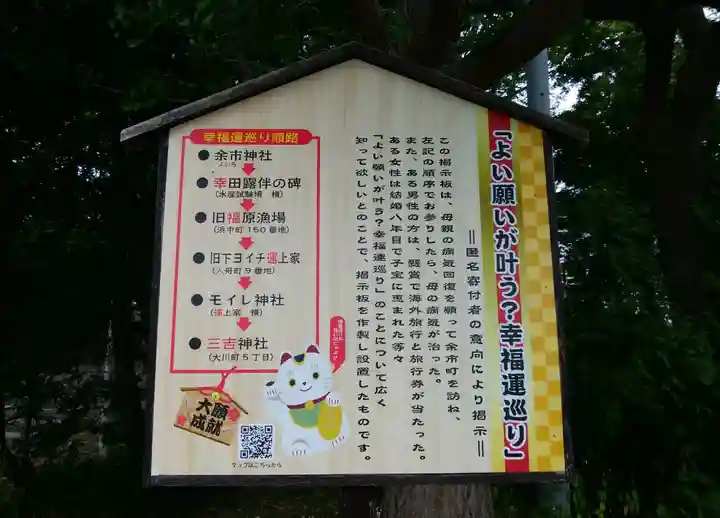 「よい願いが叶う?幸福運巡り」
＝匿名寄付者の意向により掲示＝
この掲示板は、母親の病気回復を願って余市町を訪ね、
左記の順序でお参りしたら、母の病気が治った。
また、ある男性の方は、懸賞で海外旅行と旅行券が当たった。
ある女性は結婚八年目で子宝に恵まれた等々
「よい願いが叶う?幸福運巡り」のことについて広く
知って欲しいとのことで、掲示板を作製し設置したものです。
幸福運巡り順路
●余市神社
よいち
●幸田露伴の碑
(水産試験場 横)
●旧福原漁場
(浜中町150番地)
●旧下ヨイチ運上家
(入舟町9番地)
●モイレ神社
(運上家 横)
●三吉神社
(大川町5丁目)
大願
成就
マップはこちらから